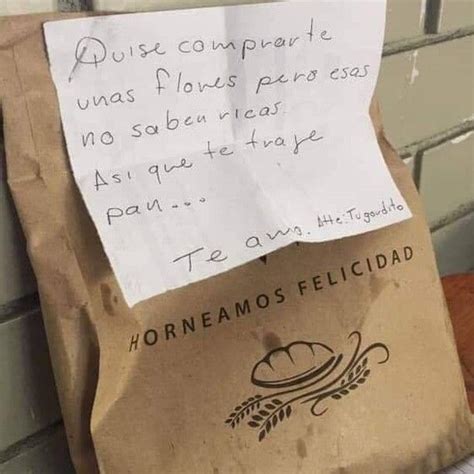 Quise comprarte
unas flores pero esas
no saben ricas.
Asi que te traje
pan...
Te amo. Atte: Tu gordito
HORNEAMOS FELICIDAD